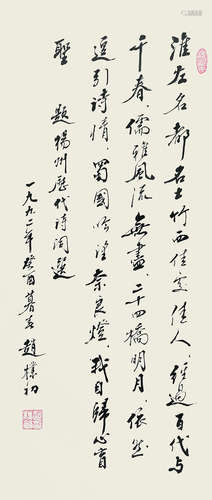 淮左名都名士竹西佳處佳人，经過百代与
千春，儒雅風流無盡，二十四橋明月，依然
逗引詩情，蜀國吟望奈良燈，我自歸心盲
聖
題揚州歷代詩词選
一九九二年癸酉暮春 趙樸初